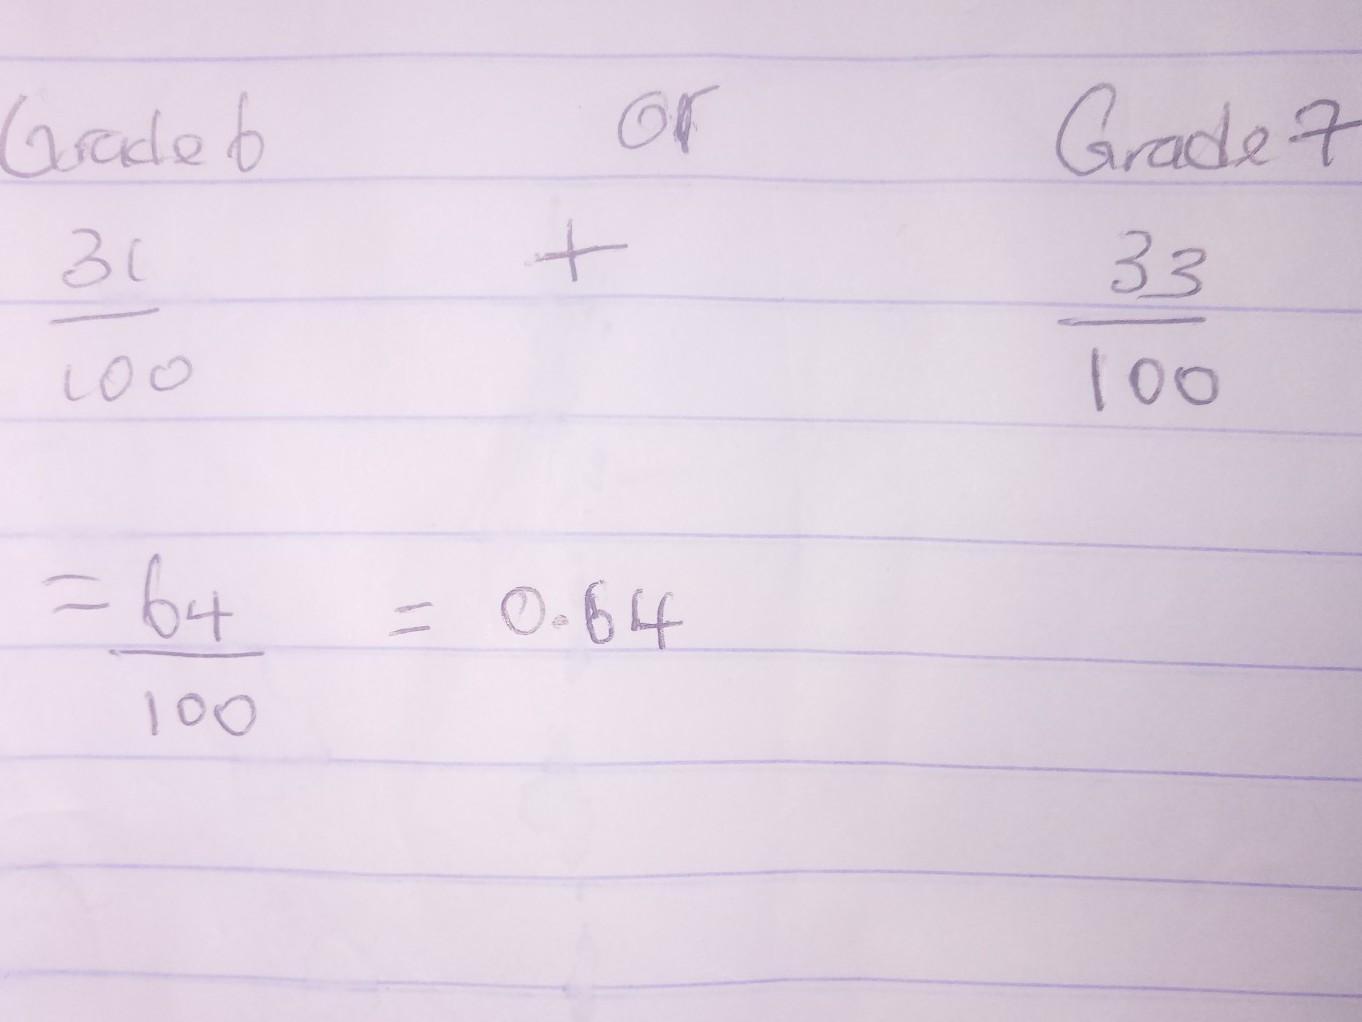 Grade 6 or Grade 7
31 + 33
100 100
= 64 = 0.64
100